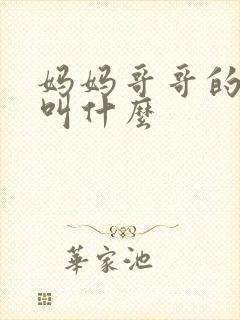 妈妈哥哥的
叫什麼
華家池